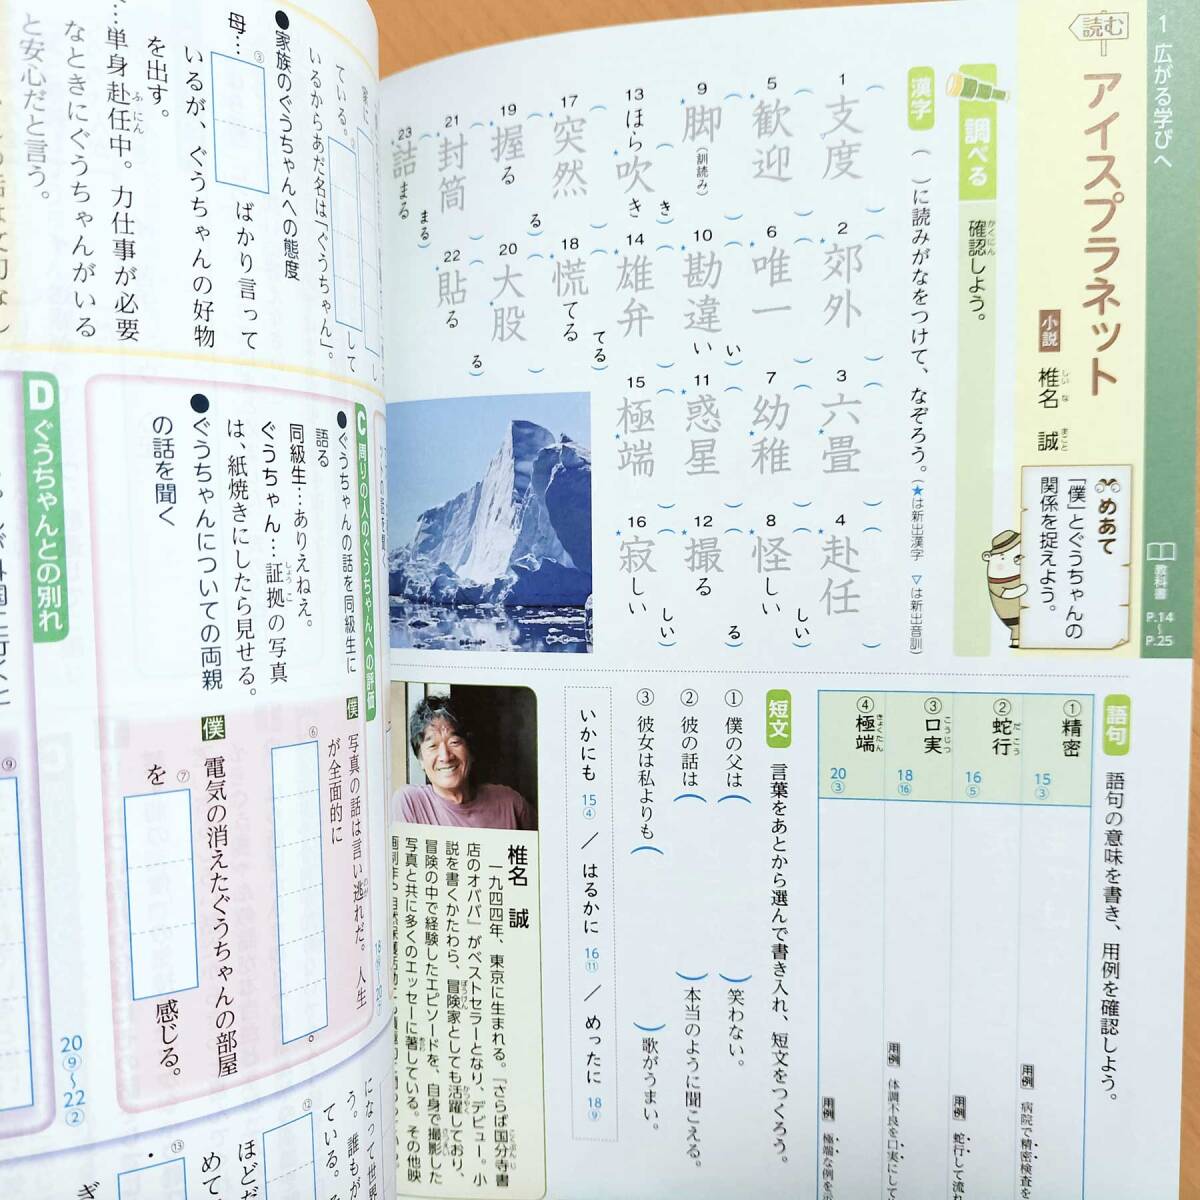 1 広がる学びへ
読む
アイスプラネット
小説
椎名 誠
しいな まこと
教科書
P.14〜P.25
めあて
「僕」とぐうちゃんの
関係を捉えよう。
調べる
確認しよう。
かくにん
漢字
( )に読みがなをつけて、なぞろう。(★は新出漢字 ▽は新出音訓)
1 支度
2 郊外
3 六畳
4 赴任
5 歓迎
6 唯一
7 幼稚
8 怪しい
しい
9 脚(訓読み)
10 勘違い
い
11 惑星
12 撮る
る
13 ほら吹き
き
14 雄弁
15 極端
16 寂しい
しい
17 突然
18 慌てる
てる
19 握る
る
20 大股
21 封筒
22 貼る
る
23 詰まる
まる
語句
語句の意味を書き、用例を確認しよう。
① 精密
15③
用例 病院で精密検査を
② 蛇行
だこう
16⑤
用例 蛇行して流
③ 口実
こうじつ
18⑯
用例 体調不良を口実にして
④ 極端
きょくたん
20③
用例 極端な例を
短文
言葉をあとから選んで書き入れ、短文をつくろう。
① 僕の父は( )笑わない。
② 彼の話は( )本当のように聞こえる。
③ 彼女は私よりも( )歌がうまい。
いかにも 15④ / はるかに 16⑪ / めったに 18⑨
椎名 誠
一九四四年、東京に生まれる。『さらば国分寺書
こくぶんじ
店のオババ』がベストセラーとなり、デビュー。小
説を書くかたわら、冒険家としても活躍しており、
ぼうけん かつやく
冒険の中で経験したエピソードを、自身で撮影した
写真と共に多くのエッセーに著している。その他映
画制作や自然保護活動にも
家に
ている。
② して
いるからあだ名は「ぐうちゃん」。
●家族のぐうちゃんへの態度
母… ③ ばかり言って
いるが、ぐうちゃんの好物
を出す。
…単身赴任中。力仕事が必要
ふにん
なときにぐうちゃんがいる
と安心だと言う。
C 周りの人のぐうちゃんへの評価
●ぐうちゃんの話を同級生に
語る
同級生…ありえねえ。
ぐうちゃん…証拠の写真
しょうこ
は、紙焼きにしたら見せる。
●ぐうちゃんについての両親
の話を聞く
僕 写真の話は言い逃れだ。人生
のが
が全面的に
⑥ 。
18⑲〜20⑦
僕 電気の消えたぐうちゃんの部屋
を ⑦ 感じる。
D ぐうちゃんとの別れ
20⑨〜22②
⑨
⑫
⑬
になって世界
う。誰もが
ている。
ほどだ
めて